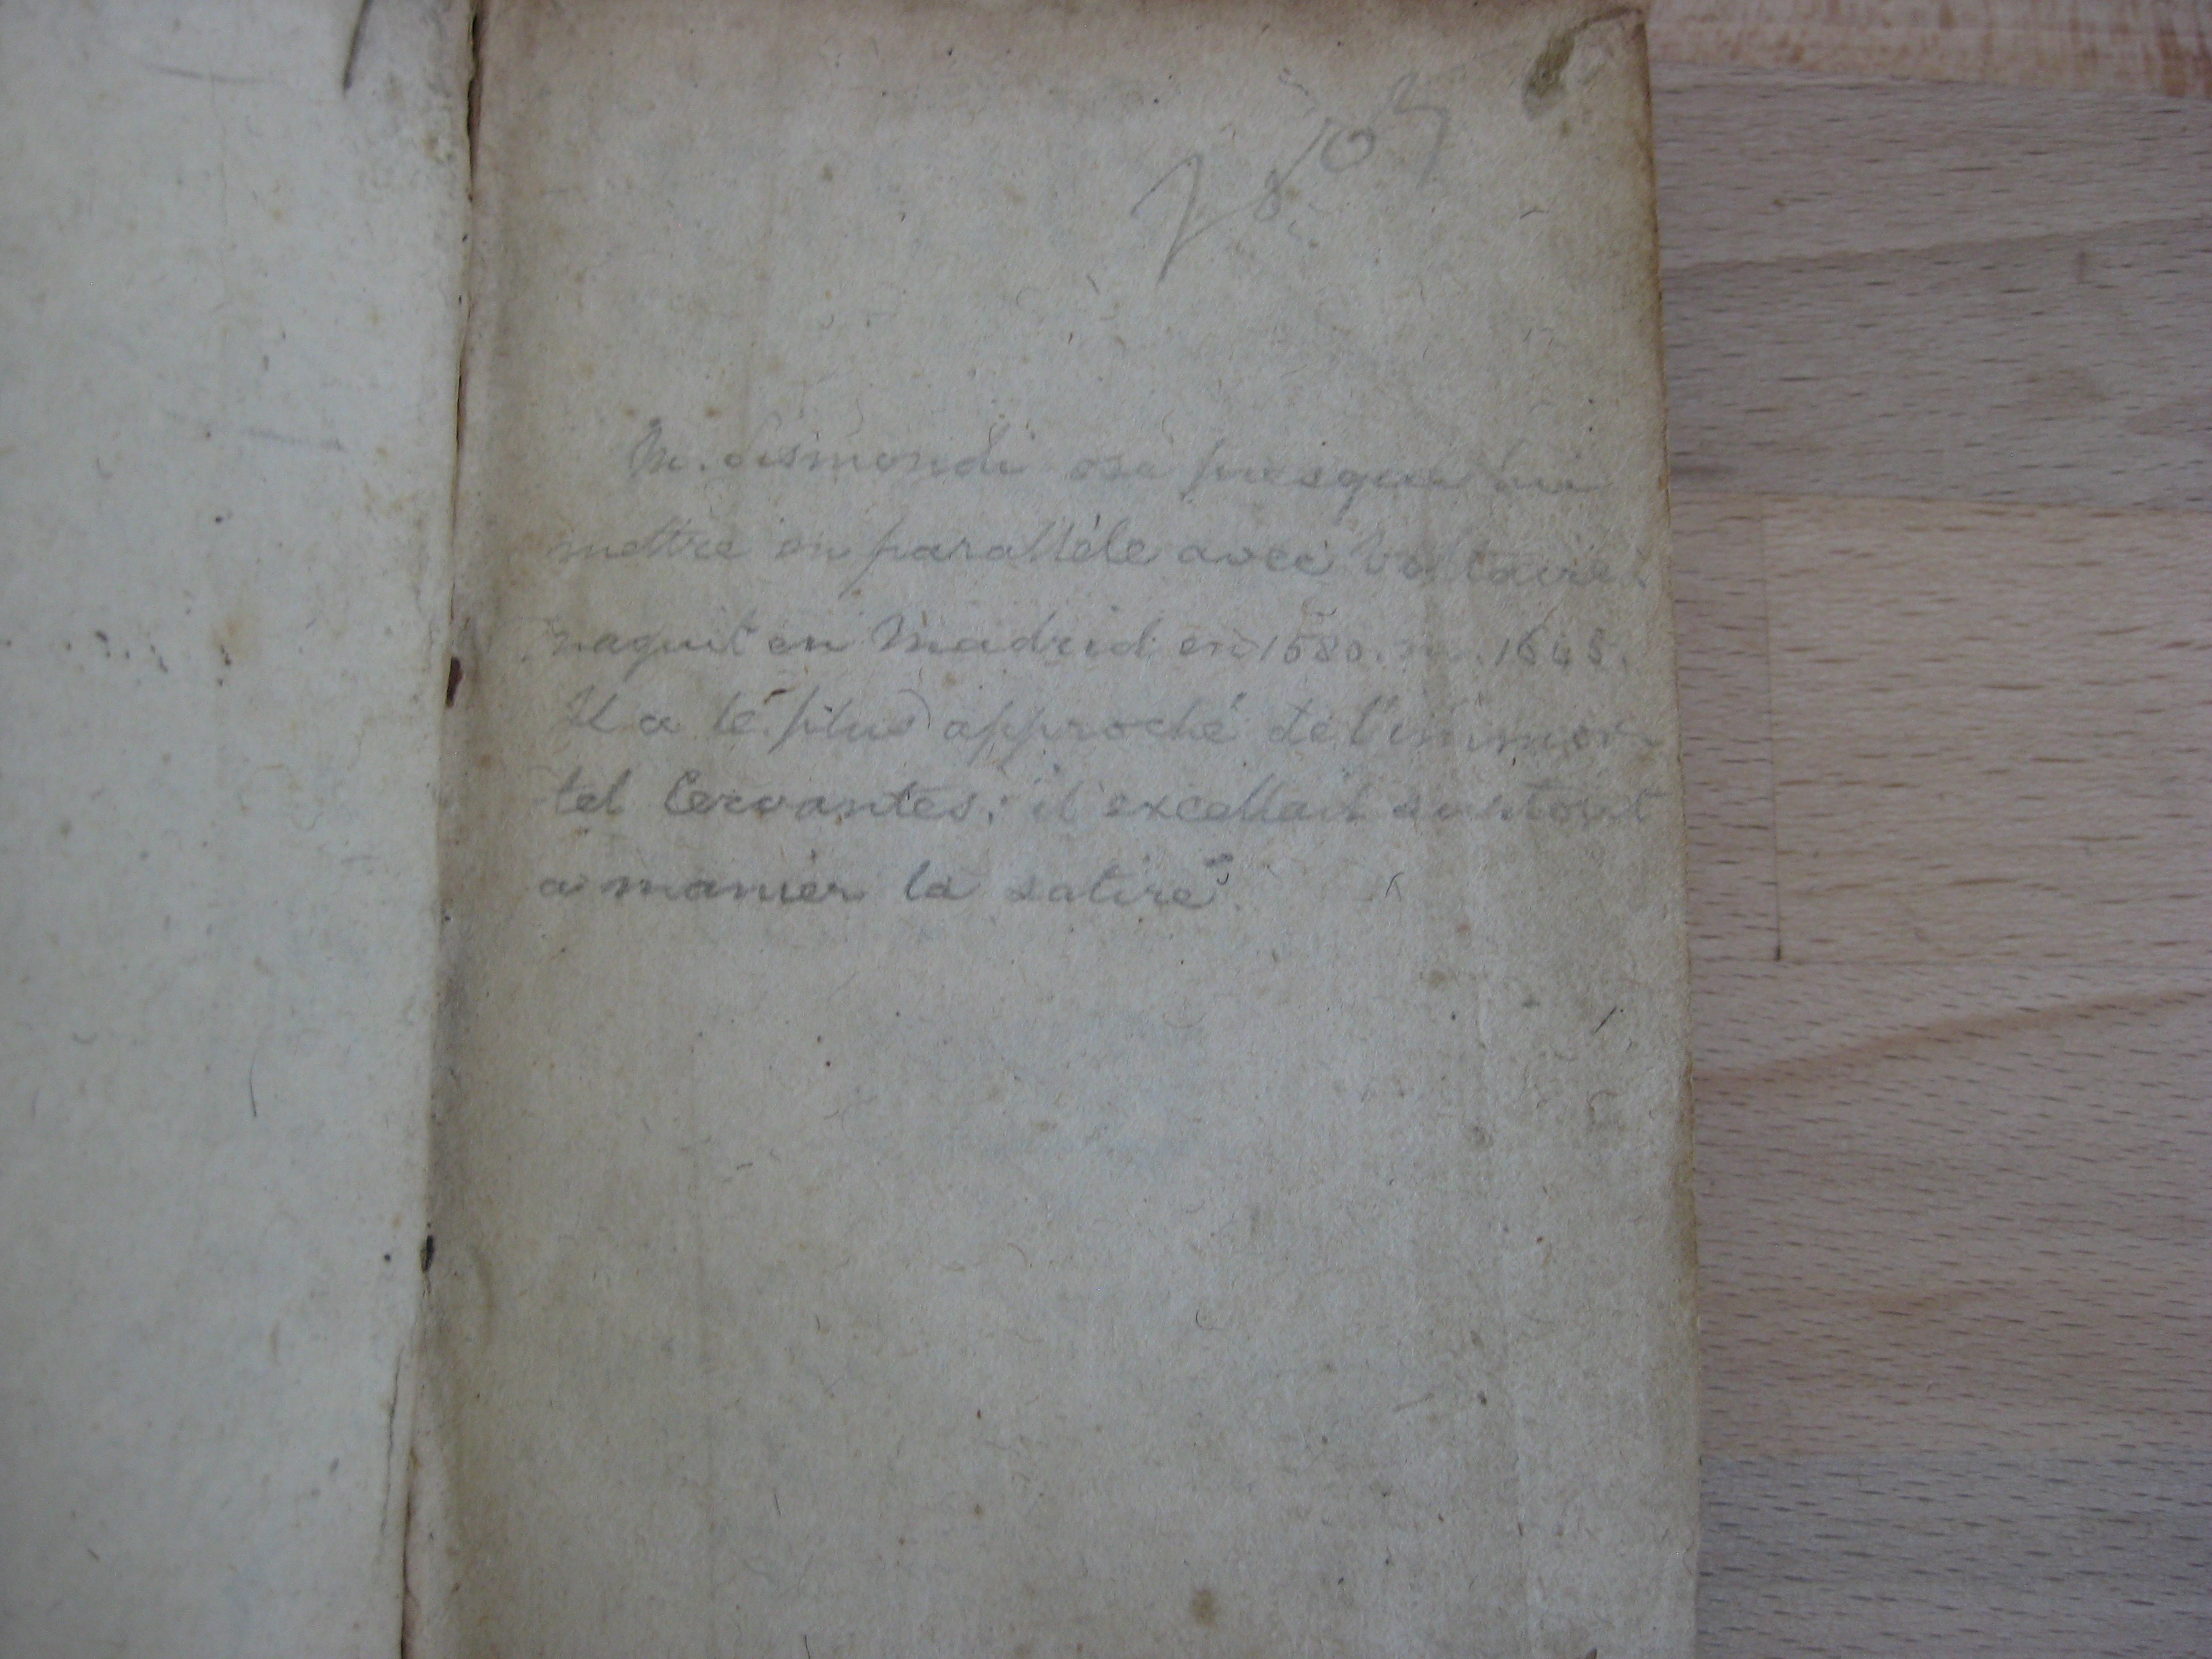 M. Sismondi ose presque lui
mettre en parallèle avec Voltaire.
naquit en Madrid en 1580. m. 1645.
Il a le plus approché de l'immor-
tel Cervantes: il excellait surtout
a manier la satire.